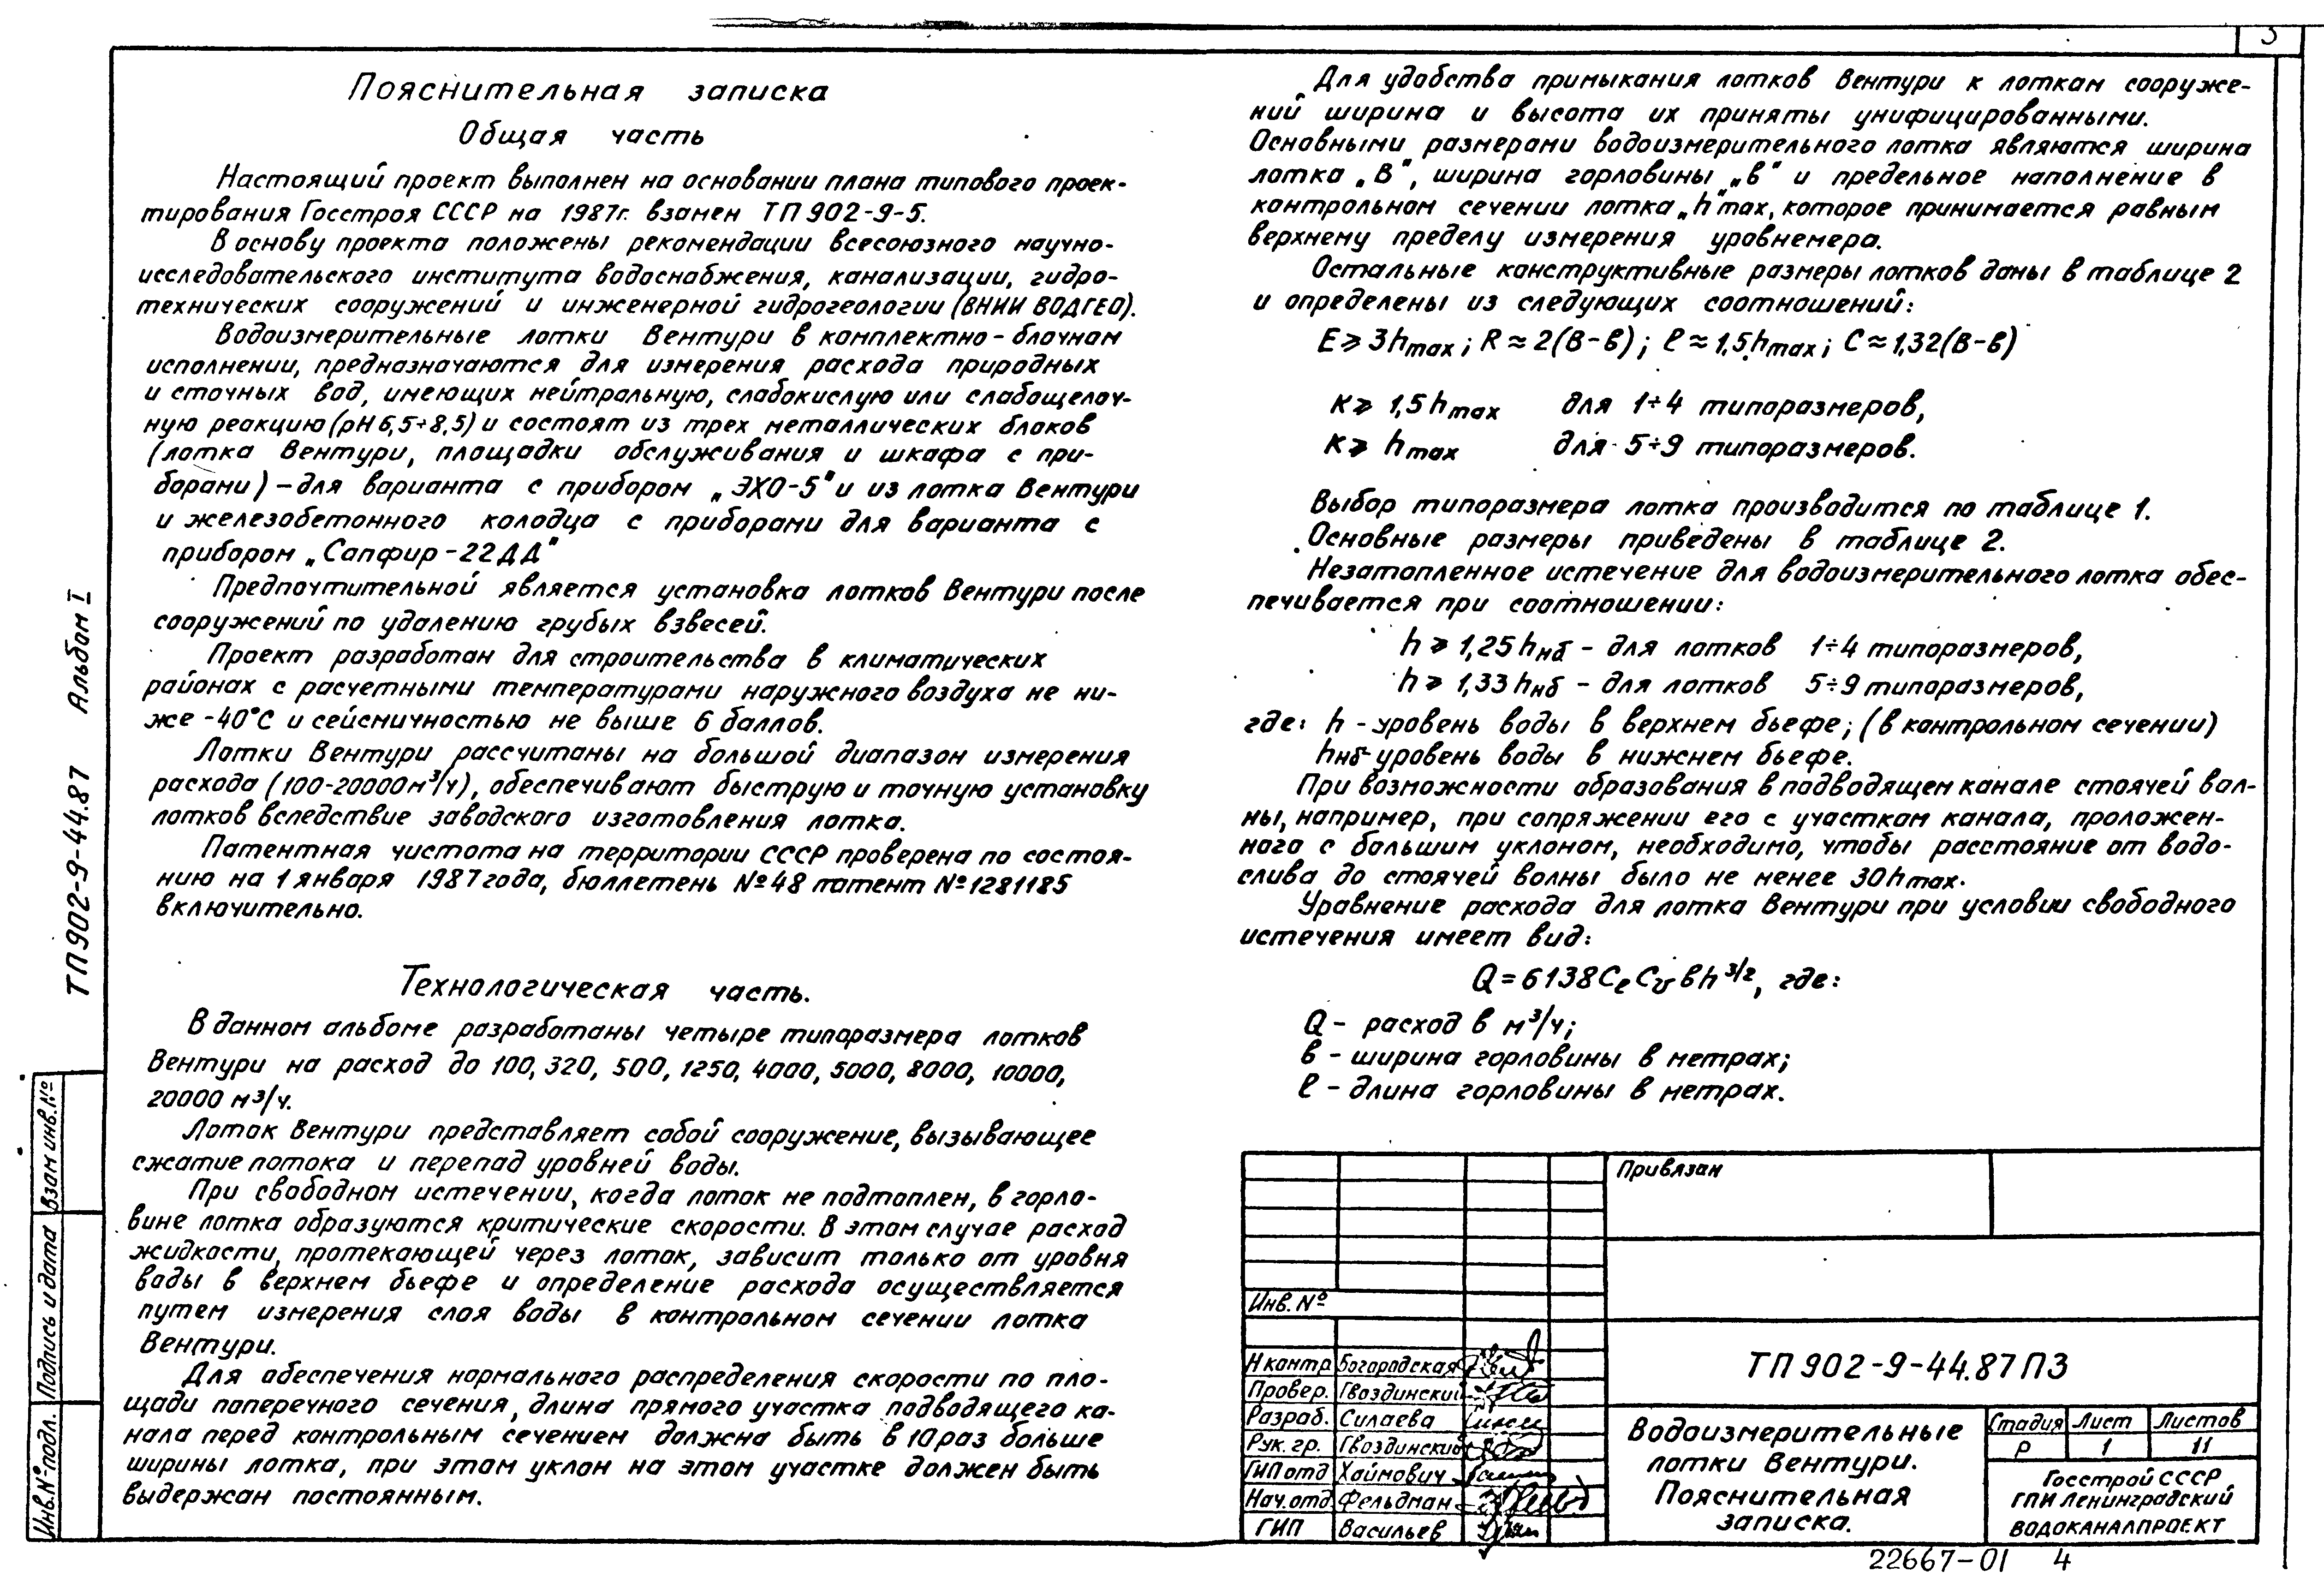 3
Пояснительная записка
Общая часть
Настоящий проект выполнен на основании плана типового проек-
тирования Госстроя СССР на 1987г. взамен ТП 902-9-5.
В основу проекта положены рекомендации всесоюзного научно-
исследовательского института водоснабжения, канализации, гидро-
технических сооружений и инженерной гидрогеологии (ВНИИ ВОДГЕО).
Водоизмерительные лотки Вентури в комплектно-блочном
исполнении, предназначаются для измерения расхода природных
и сточных вод, имеющих нейтральную, слабокислую или слабощелоч-
ную реакцию (pH 6,5÷8,5) и состоят из трех металлических блоков
(лотка Вентури, площадки обслуживания и шкафа с при-
борами) – для варианта с прибором „ЭХО-5" и из лотка Вентури
и железобетонного колодца с приборами для варианта с
прибором „Сапфир-22ДД"
Предпочтительной является установка лотков Вентури после
сооружений по удалению грубых взвесей.
Проект разработан для строительства в климатических
районах с расчетными температурами наружного воздуха не ни-
же -40°С и сейсмичностью не выше 6 баллов.
Лотки Вентури рассчитаны на большой диапазон измерения
расхода (100-20000м³/ч), обеспечивают быструю и точную установку
лотков вследствие заводского изготовления лотка.
Патентная чистота на территории СССР проверена по состоя-
нию на 1 января 1987 года, бюллетень №48 патент №1281185
включительно.
Технологическая часть.
В данном альбоме разработаны четыре типоразмера лотков
Вентури на расход до 100, 320, 500, 1250, 4000, 5000, 8000, 10000,
20000 м³/ч.
Лоток Вентури представляет собой сооружение, вызывающее
сжатие потока и перепад уровней воды.
При свободном истечении, когда лоток не подтоплен, в горло-
вине лотка образуются критические скорости. В этом случае расход
жидкости, протекающей через лоток, зависит только от уровня
воды в верхнем бьефе и определение расхода осуществляется
путем измерения слоя воды в контрольном сечении лотка
Вентури.
Для обеспечения нормального распределения скорости по пло-
щади поперечного сечения, длина прямого участка подводящего ка-
нала перед контрольным сечением должна быть в 10 раз больше
ширины лотка, при этом уклон на этом участке должен быть
выдержан постоянным.
Для удобства примыкания лотков Вентури к лоткам сооруже-
ний ширина и высота их приняты унифицированными.
Основными размерами водоизмерительного лотка являются ширина
лотка „В", ширина горловины „в" и предельное наполнение в
контрольном сечении лотка „h"max, которое принимается равным
верхнему пределу измерения уровнемера.
Остальные конструктивные размеры лотков даны в таблице 2
и определены из следующих соотношений:
E ⩾ 3hmax; R ≈ 2(В-в); ℓ ≈ 1,5hmax; C ≈ 1,32(В-в)
K ⩾ 1,5hmax для 1÷4 типоразмеров,
K ⩾ hmax для 5÷9 типоразмеров.
Выбор типоразмера лотка производится по таблице 1.
Основные размеры приведены в таблице 2.
Незатопленное истечение для водоизмерительного лотка обес-
печивается при соотношении:
h ⩾ 1,25hнб – для лотков 1÷4 типоразмеров,
h ⩾ 1,33hнб – для лотков 5÷9 типоразмеров,
где: h – уровень воды в верхнем бьефе; (в контрольном сечении)
hнб-уровень воды в нижнем бьефе.
При возможности образования в подводящем канале стоячей вол-
ны, например, при сопряжении его с участком канала, проложен-
ного с большим уклоном, необходимо, чтобы расстояние от водо-
слива до стоячей волны было не менее 30hmax.
Уравнение расхода для лотка Вентури при условии свободного
истечения имеет вид:
Q = 6138CℓCυвh³/², где:
Q – расход в м³/ч;
в – ширина горловины в метрах;
ℓ – длина горловины в метрах.
ТП 902-9-44.87 Альбом I
Взам инв.№
Подпись и дата
Инв.№ подл.
Привязан
Инв. №
Н контр Богородская
Провер. Гвоздинский
Разраб. Силаева
Рук. гр. Гвоздинский
ГИП отд Хаймович
Нач. отд Фельдман
ГИП Васильев
ТП 902-9-44.87 ПЗ
Водоизмерительные
лотки Вентури.
Пояснительная
записка.
Стадия Лист Листов
Р 1 11
Госстрой СССР
ГПИ Ленинградский
ВОДОКАНАЛПРОЕКТ
22667-01 4